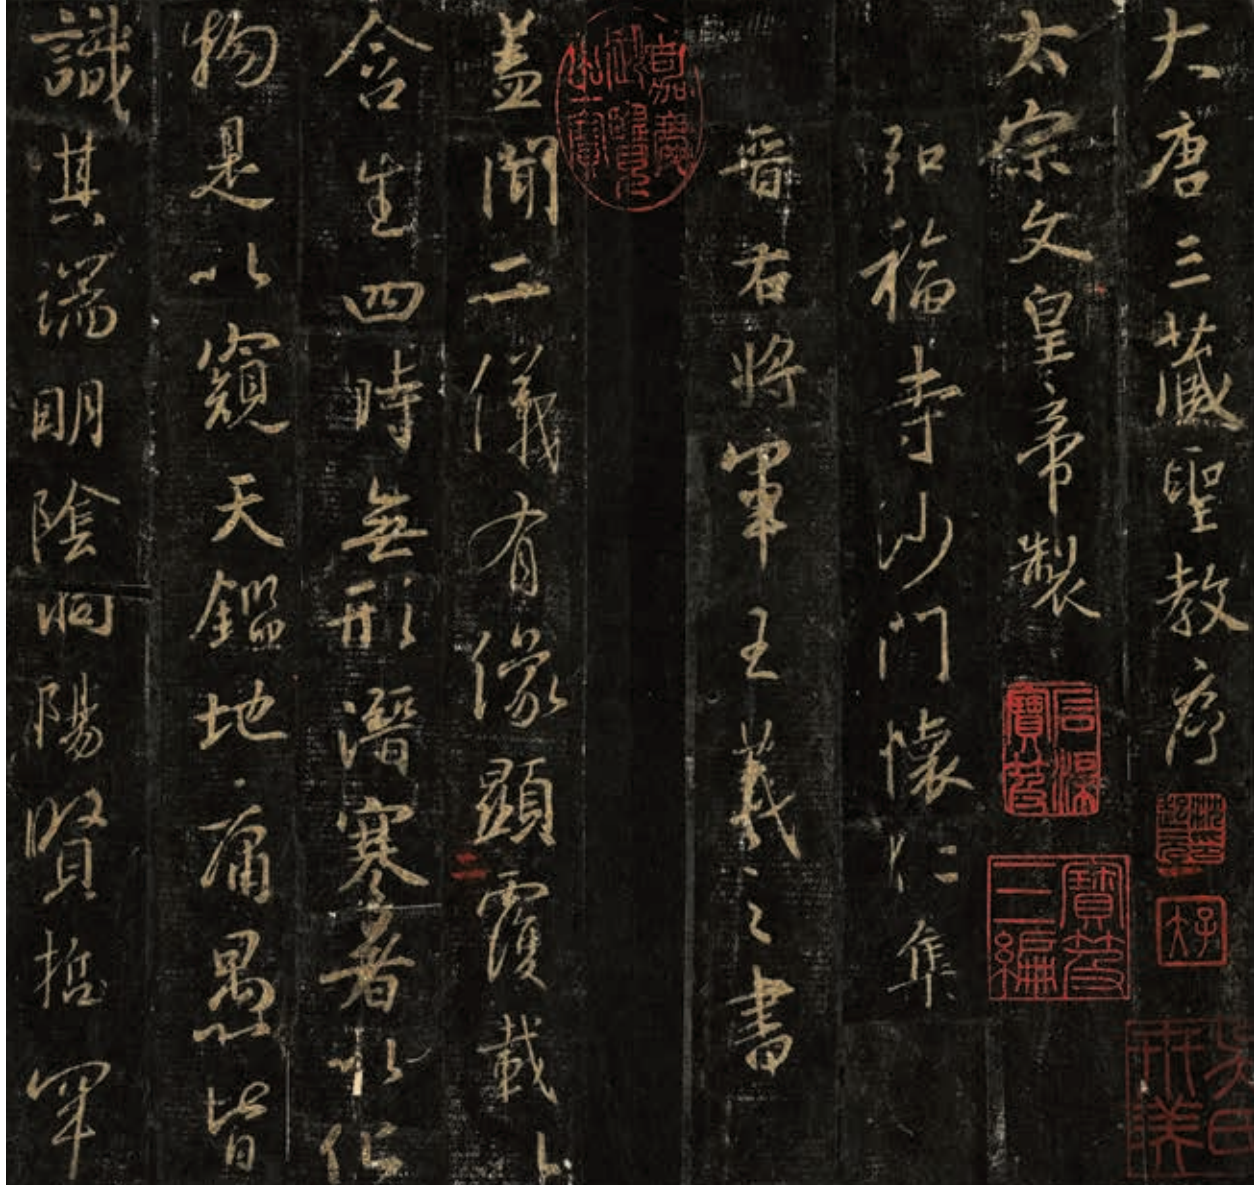 大唐三藏聖教序
太宗文皇帝製
弘福寺沙門懷仁集
晉右將軍王羲之書
蓋聞二儀有像顯覆載以
含生四時無形潛寒暑以化
物是以窺天鑑地庸愚皆
識其端明陰洞陽賢哲罕
嘉慶御覽之寶
石渠寶笈
寶笈三編